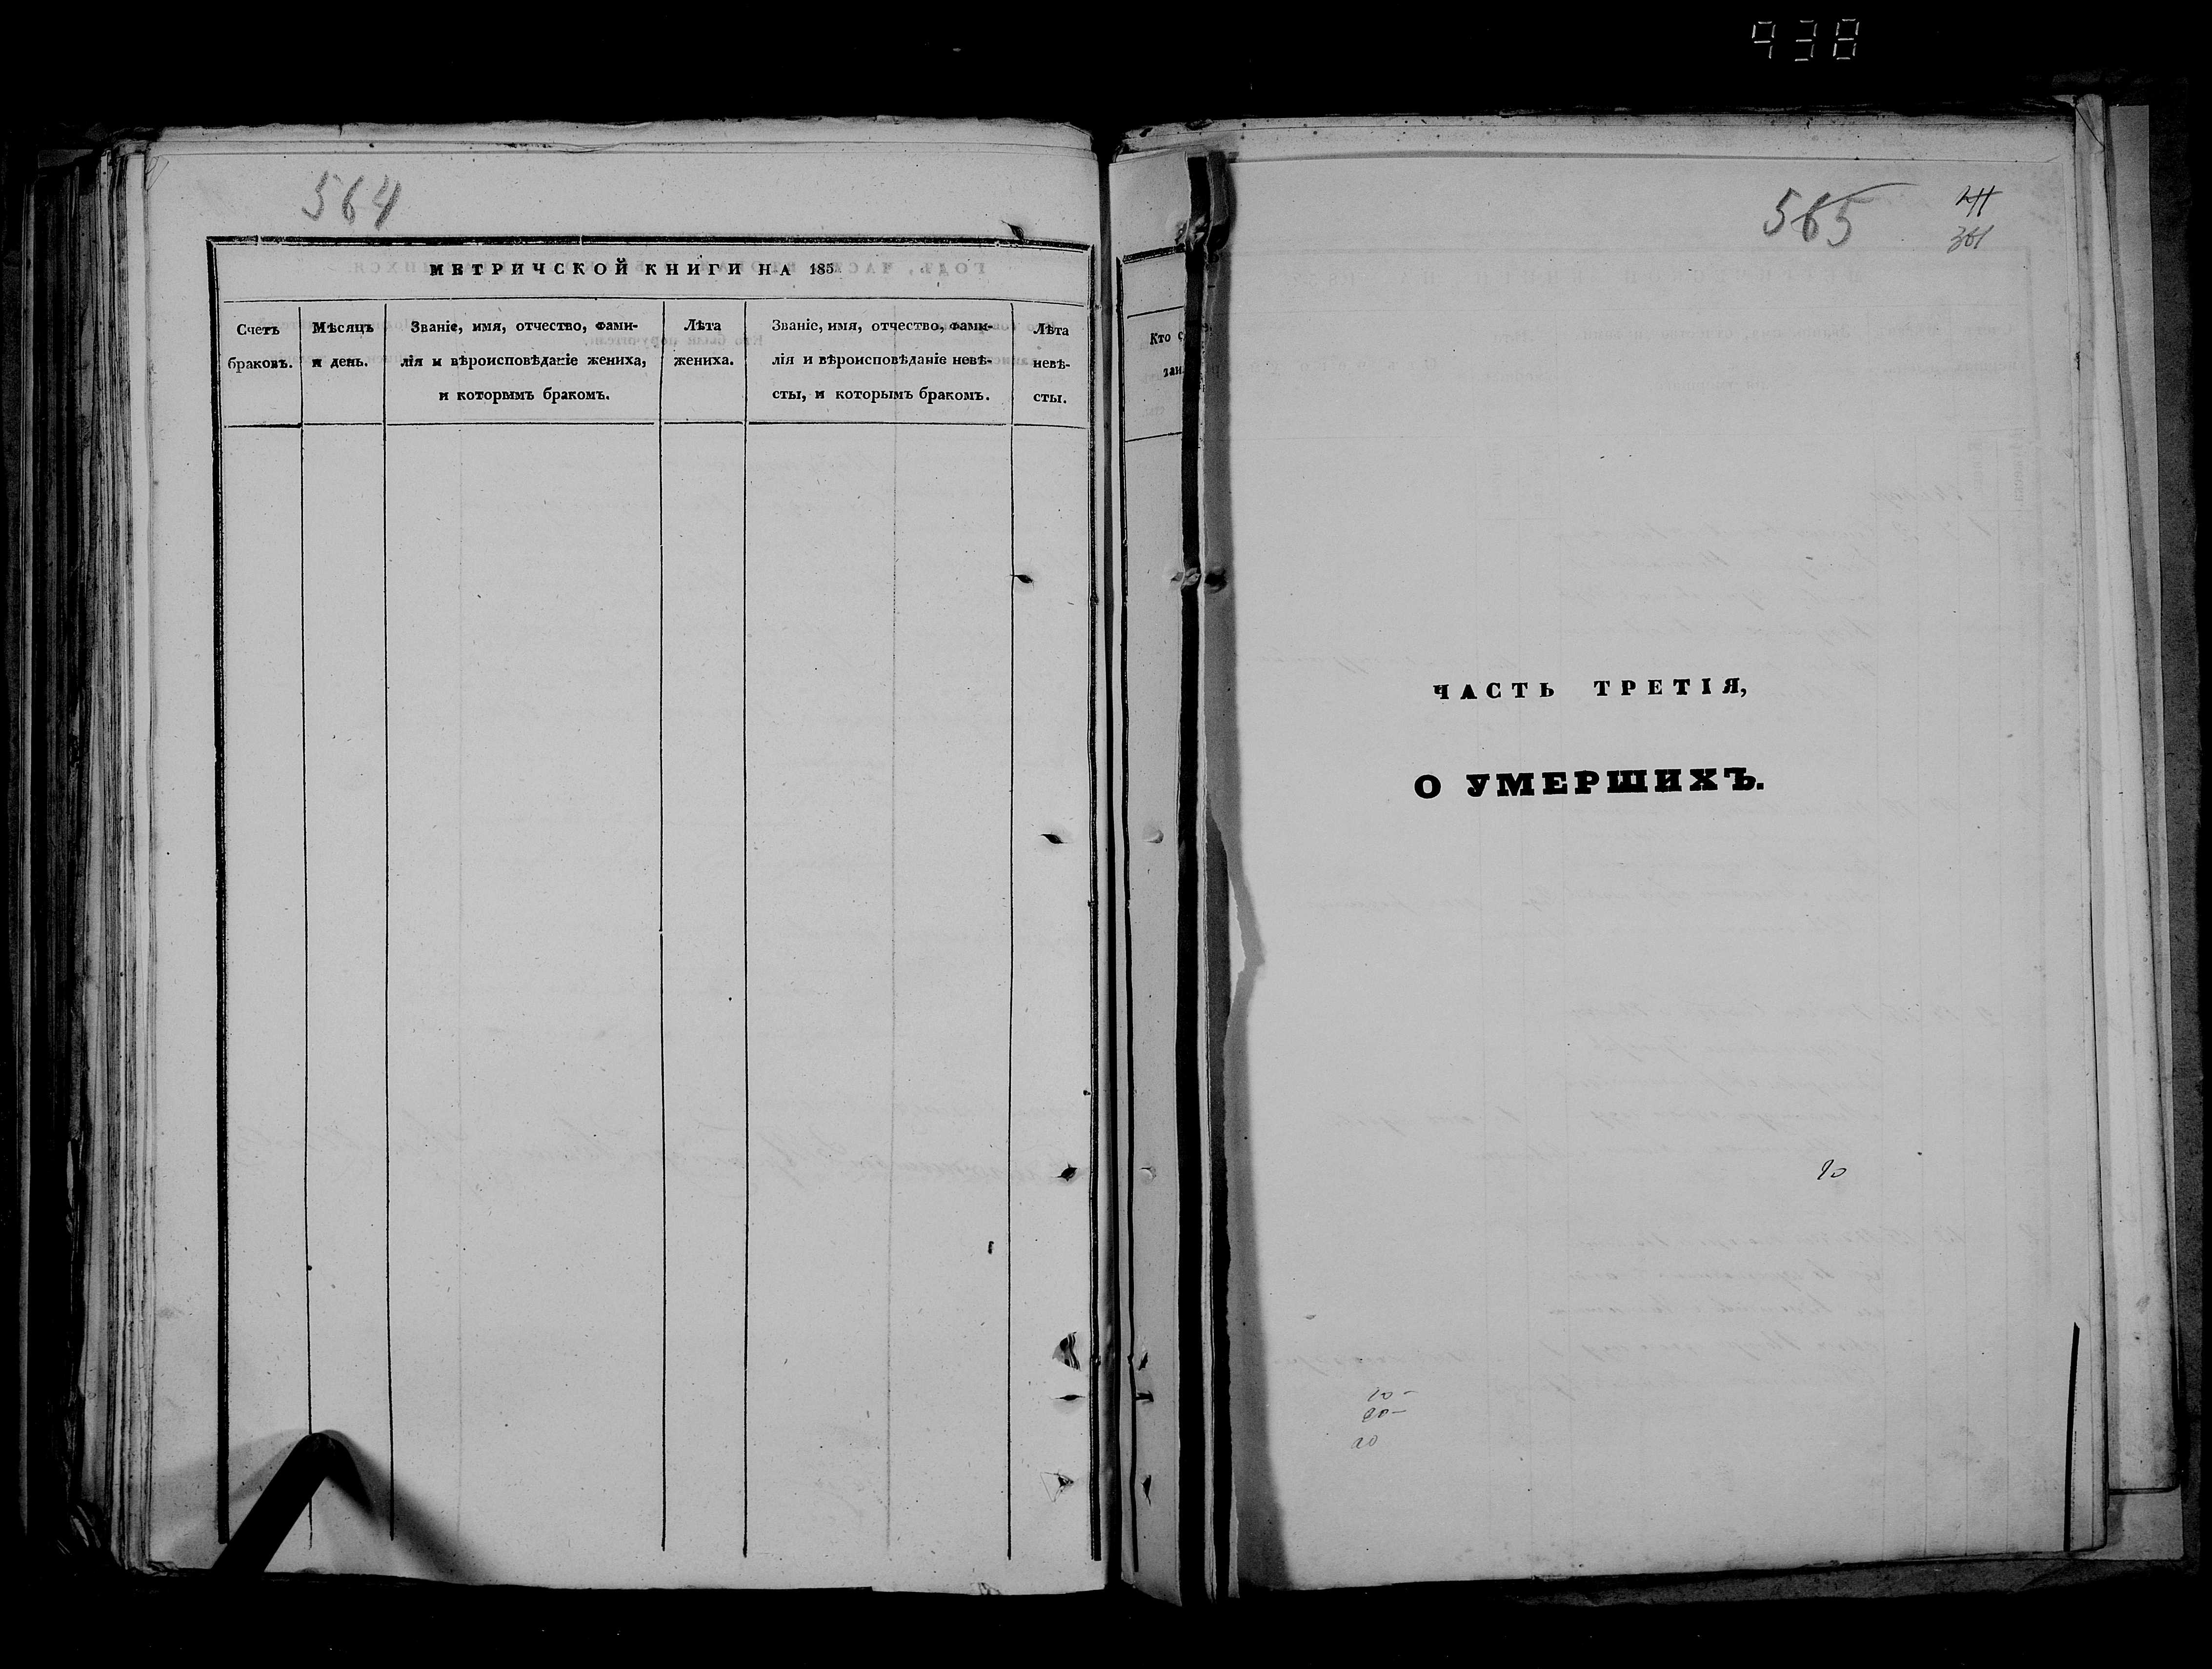 938
564
МЕТРИЧСКОЙ КНИГИ НА 185
Счетъ браковъ.
Мѣсяцъ и день.
Званіе, имя, отчество, фами-
лія и вѣроисповѣданіе жениха,
и которымъ бракомъ.
Лѣта жениха.
Званіе, имя, отчество, фами-
лія и вѣроисповѣданіе невѣ-
сты, и которымъ бракомъ.
Лѣта
невѣ-
сты.
Кто
565
ЧАСТЬ ТРЕТІЯ,
О УМЕРШИХЪ.
10 -
20